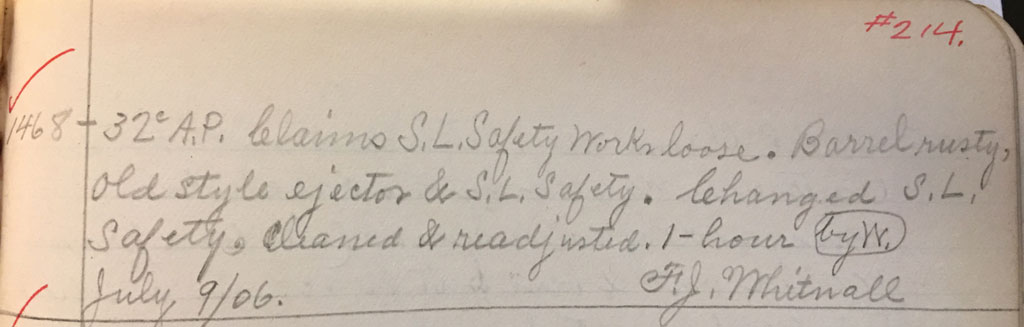 #214.
1468 - 32c A.P. Claims S.L. Safety works loose. Barrel rusty,
old style ejector & S.L. Safety. Changed S.L.
Safety, cleaned & readjusted. 1-hour by W.
July 9/06. F.J. Whitnall